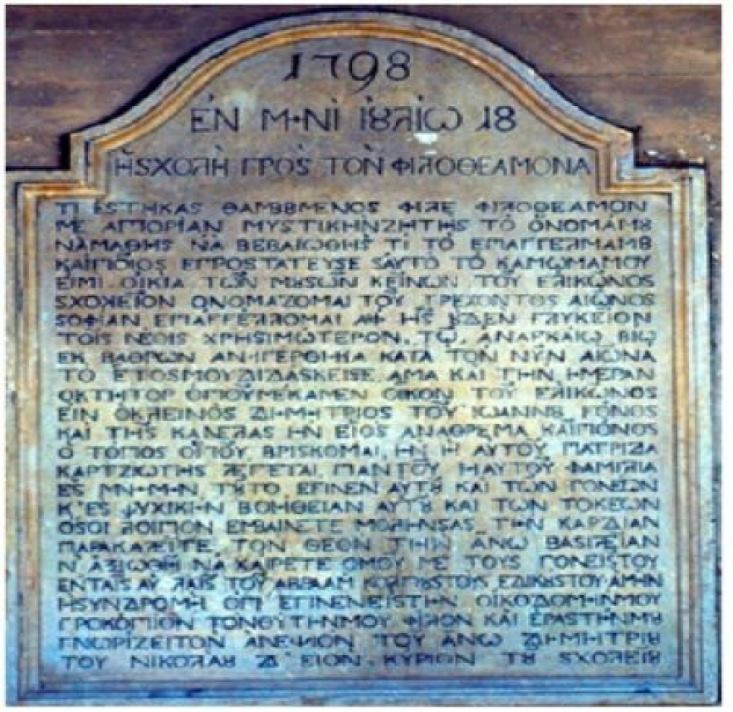 1798
ἘΝ Μ·ΝῚ ἸȢΛΊΩ 18
ἩSΧΟΛῊ ΠΡΟ῀S ΤΟ῀Ν ΦΙΛΟΘΕΑΜΟΝΑ
ΤΙ ΕSΤΗΚΑS ΘΑΜΒȢΜΕΝΟS ΦΙΛΕ ΦΙΛΟΘΕΑΜΟΝ
ΜΕ ΑΠΟΡΙΑΝ ΜΥSΤΙΚΗΝ ΖΗΤΗS ΤΟ ΟΝΟΜΑΜȢ
ΝΑΜΑΘΗS ΝΑ ΒΕΒΑΙΩΘΗS ΤΙ ΤΟ ΕΠΑΓΓΕΛΜΑΜȢ
ΚΑΙΠΟΙΟS ΕΠΡΟSΤΑΤΕΥSΕ ΤΟ ΚΑΜΩΜΑΜΟΥ
ΕΙΜΙ ΟΙΚΙΑ ΤΩΝ ΜȢSΩΝ ΚΕΙΝΩΝ ΤΟΥ ΕΛΙΚΩΝΟS
SΧΟΛΕΙΟΝ ΟΝΟΜΑΖΟΜΑΙ ΤΟΥ ΤΡΕΧΟΝΤΟS ΑΙΩΝΟS
SΟΦΙΑΝ ΕΠΑΓΓΕΛΛΟΜΑΙ ΑΦ ΗS ȢΔΕΝ ΓΛΥΚΕΙΟΝ
ΤΟΙS ΝΕΟΙS ΧΡΗSΙΜΩΤΕΡΟΝ ΤΩ ΑΝΑΓΚΑΙΩ ΒΙΩ
ΕΚ ΒΑΘΡΩΝ ΑΝΗΓΕΡΘΗΚΑ ΚΑΤΑ ΤΟΝ ΝΥΝ ΑΙΩΝΑ
ΤΟ ΕΤΟSΜΟΥΔΙΔΑSΚΕΙSΕ ΑΜΑ ΚΑΙ ΤΗΝ ΗΜΕΡΑΝ
ΟΚΤΗΤΟΡ ΟΠΟΥΜΕΚΑΜΕΝ ΟΙΚΟΝ ΤΟΥ ΕΛΙΚΩΝΟS
ΕΙΝ ΟΚΛΕΙΝΟS ΔΗΜΗΤΡΙΟS ΤΟΥ ΙΩΑΝΝȢ ΓΟΝΟS
ΚΑΙ ΤΗS ΚΑΝΕΛΑS ΗΝ ΕΙΟS ΑΝΑΘΡΕΜΑ ΚΑΙΠΟΝΟS
Ο ΤΟΠΟS ΟΠΟΥ ΒΡΙSΚΟΜΑΙ ΗΝ Η ΑΥΤΟΥ ΠΑΤΡΙΔΑ
ΚΑΡΤΖΙΩΤΗS ΛΕΓΕΤΑΙ ΠΑΝΤΟΥ Η ΑΥΤΟΥ ΦΑΜΙΛΙΑ
ΕΣ ΜΝ·Μ·Ν ΤȢΤΟ ΕΓΙΝΕΝ ΑΥΤȢ ΚΑΙ ΤΩΝ ΓΟΝΕΩΝ
Κ'ΕS ΨΥΧΙΚΗΝ ΒΟΗΘΕΙΑΝ ΑΥΤȢ ΚΑΙ ΤΩΝ ΤΟΚΕΩΝ
ΟSΟΙ ΛΟΙΠΟΝ ΕΜΒΑΙΝΕΤΕ ΤΗΝ ΚΑΡΔΙΑΝ
ΠΑΡΑΚΑΛΕΙΤΕ ΤΟΝ ΘΕΟΝ ΤΗΝ ΑΝΩ ΒΑSΙΛΕΙΑΝ
Ν ΑΞΙΩΘΗ ΝΑ ΧΑΙΡΕΤΕ ΟΜΟΥ ΜΕ ΤΟΥS ΓΟΝΕΙSΤΟΥ
ΕΝΤΑΙS ΑΥΛΑΙS ΤΟΥ ΑΒΡΑΑΜ ΑΜΗΝ
ΗSΥΝΔΡΟΜΗ ΟΠΙ ΕΓΙΝΕΝΕΙSΤΗΝ ΟΙΚΟΔΟΜΗΝΜΟΥ
ΠΡΟΚΟΠΙΟΝ ΤΟΝΘΥΤΗΝΜΟΥ ΦΙΛΟΝ ΚΑΙ ΕΡΑSΤΗΝΜȢ
ΓΝΩΡΙΖΕΙΤΟΝ ΑΝΕΨΙΟΝ ΤΟΥ ΑΝΩ ΔΗΜΗΤΡΙȢ
ΤΟΥ ΝΙΚΟΛΑȢ Δ ΕΙΟΝ ΚΥΡΙΟΝ ΤȢ SΧΟΛΕΙȢ